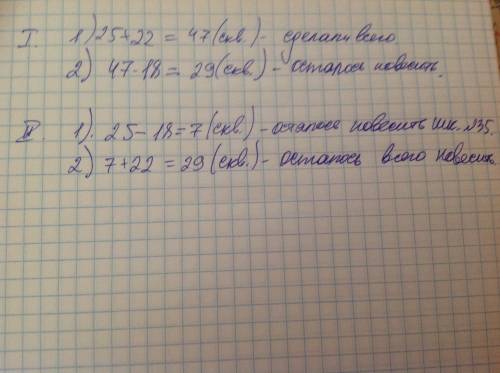 I. 1) 25+22 = 47 (скв.) - сделали всего
2) 47-18 = 29 (скв.) - осталось повесить.
II. 1). 25-18=7 (скв.) - осталось повесить шк. №35.
2) 7+22 = 29 (скв.) - осталось всего повесить.